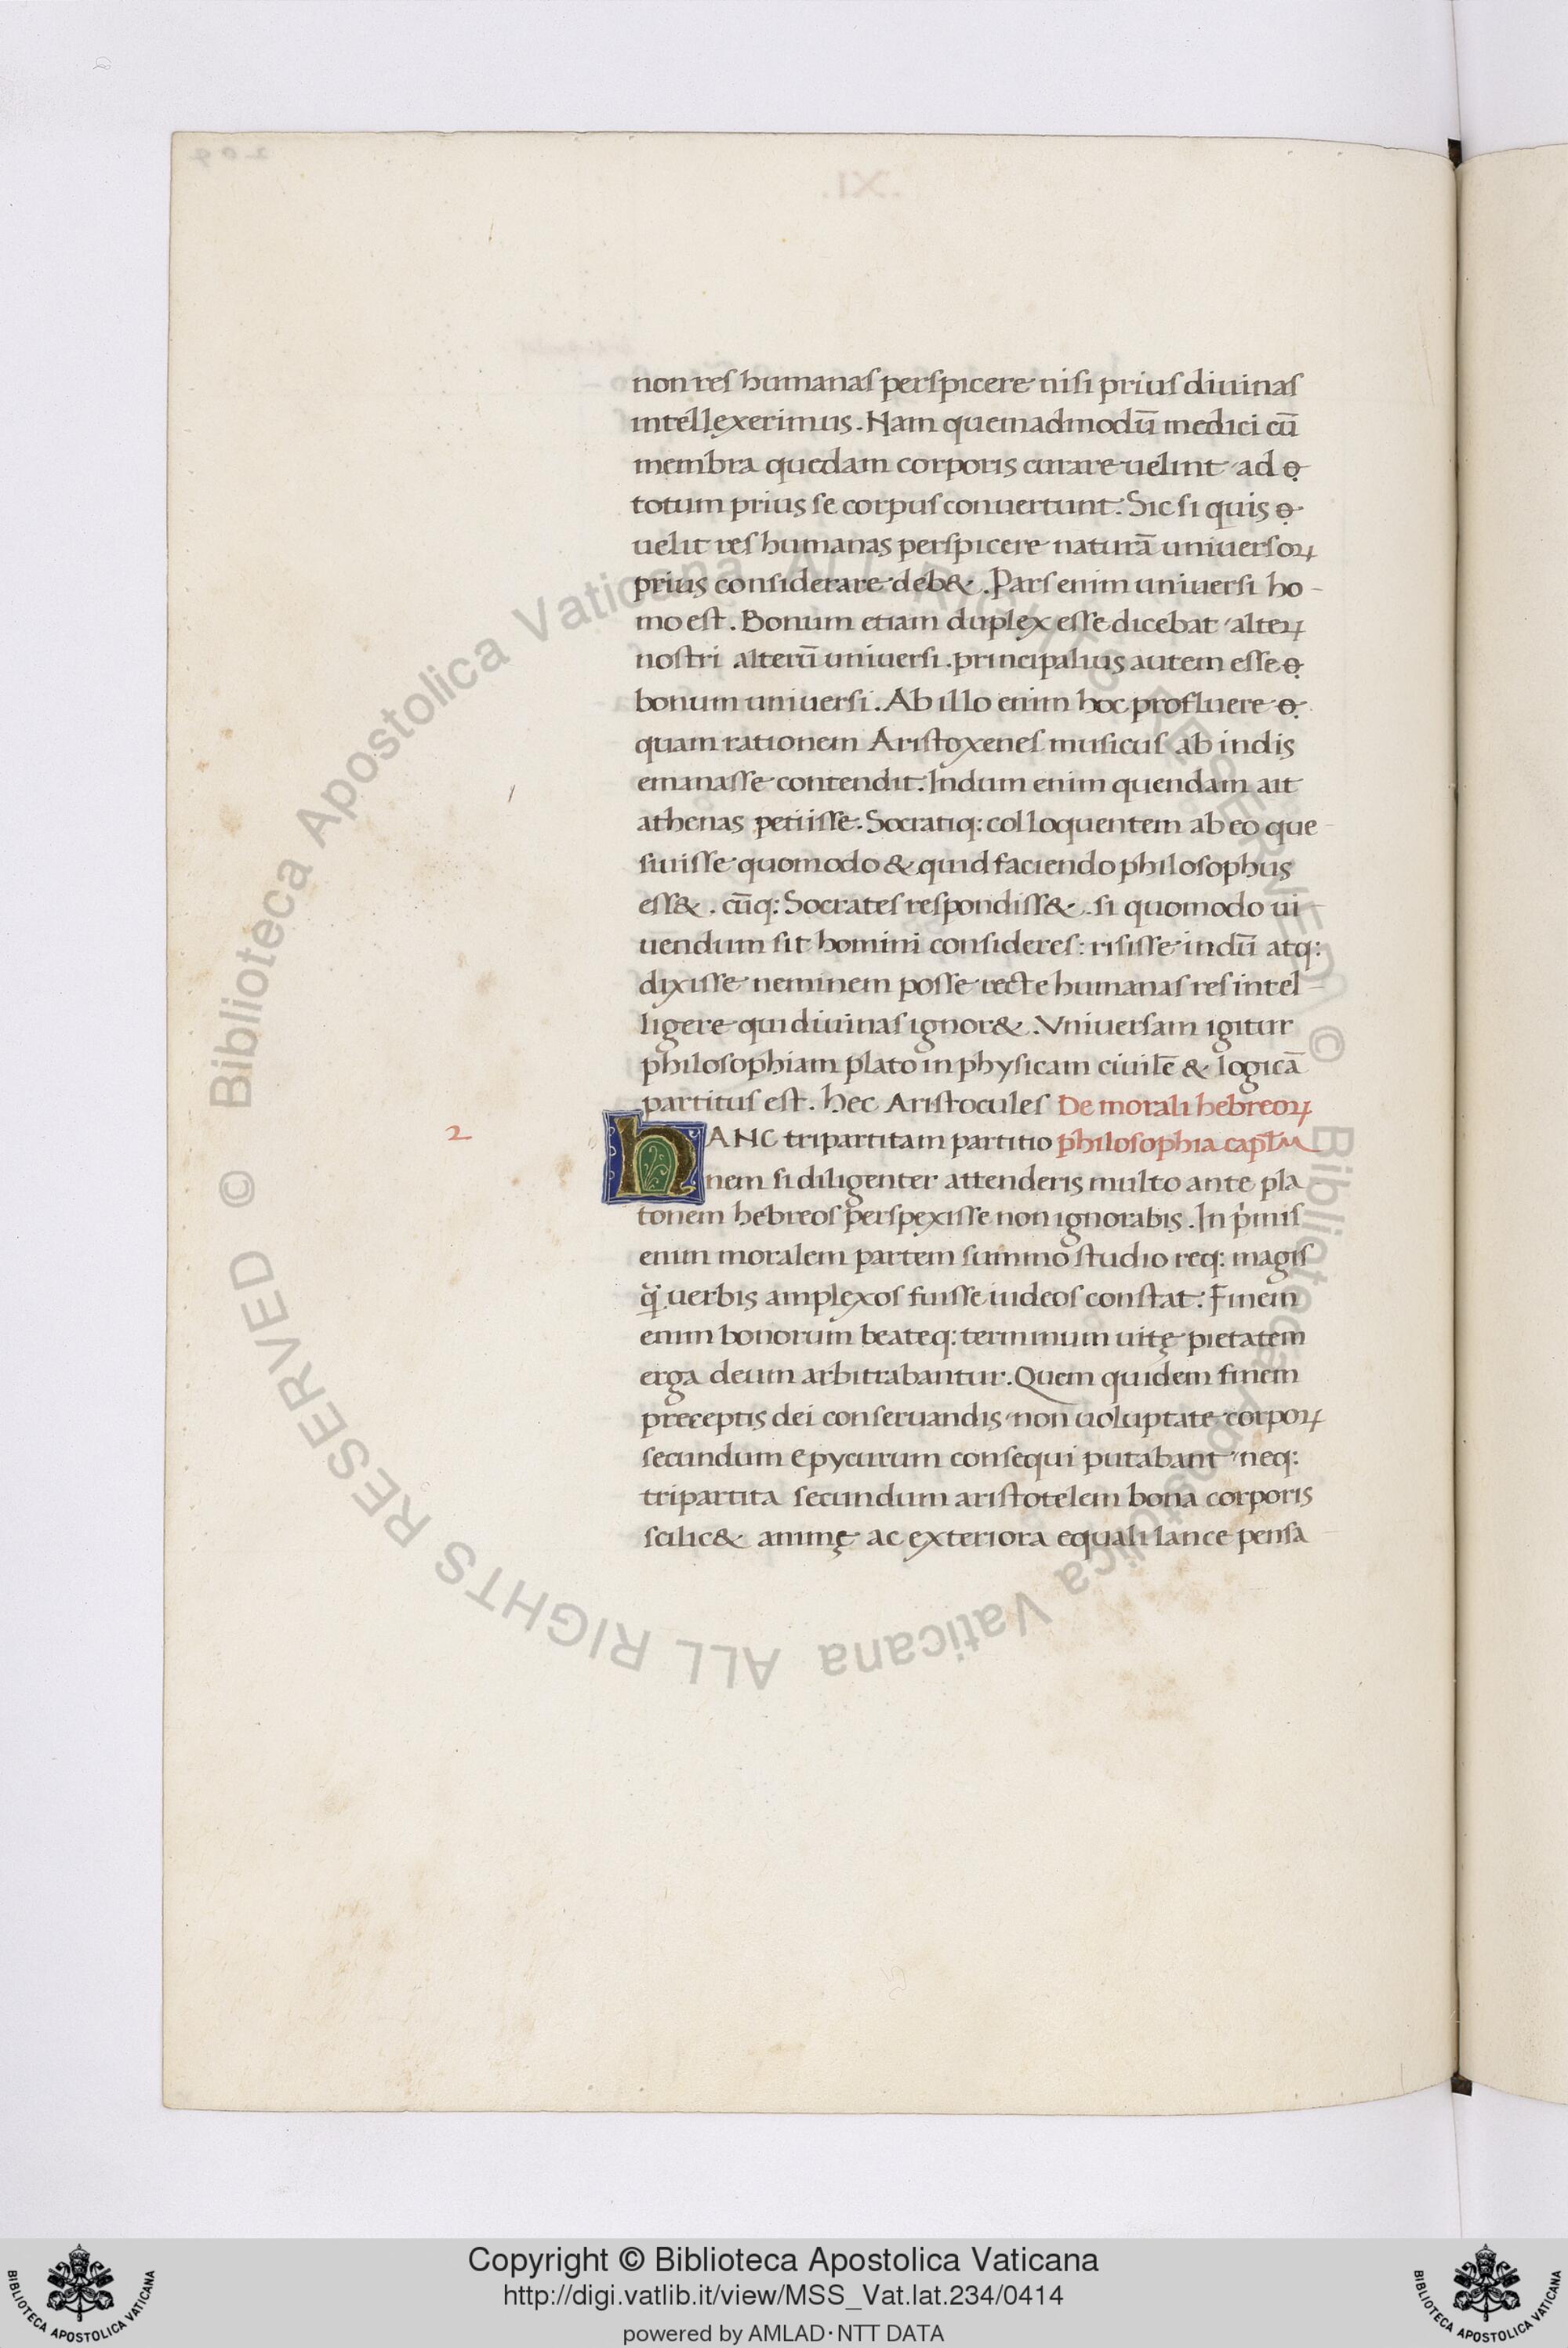 non res humanas perspicere nisi prius diuinas
intellexerimus. Nam quemadmodū medici cū
membra quedam corporis curare uelint ad
totum prius se corpus conuertunt. Sic si quis
uelit res humanas perspicere naturā uniuersoꝝ
prius considerare deb&. Pars enim uniuersi ho-
mo est. Bonum etiam duplex esse dicebat alteꝝ
nostri alterū uniuersi. principalius autem esse
bonum uniuersi. Ab illo enim hoc profluere
quam rationem Aristoxenes musicus ab indis
emanasse contendit. Indum enim quendam ait
athenas petiisse. Socratiq: colloquentem ab eo que
siuisse quomodo & quid faciendo philosophus
ess&. cūq: Socrates respondiss&. si quomodo ui
uendum sit homini consideres: risisse indū atq:
dixisse neminem posse recte humanas res intel
ligere qui diuinas ignor&. Vniuersam igitur
philosophiam plato in physicam ciuilē & logicā
partitus est. hec Aristocules De morali hebreoꝝ
2
hANC tripartitam partitio philosophia capl̄m
nem si diligenter attenderis multo ante pla
tonem hebreos perspexisse non ignorabis. In pͥmis
enim moralem partem summo studio req: magis
q̄ uerbis amplexos fuisse iudeos constat. Finem
enim bonorum beateq: terminum uitę pietatem
erga deum arbitrabantur. Quem quidem finem
preceptis dei conseruandis non uoluptate corpoꝝ
secundum epycurum consequi putabant neq:
tripartita secundum aristotelem bona corporis
scilic& animę ac exteriora equali lance pensa
© Biblioteca Apostolica Vaticana ALL RIGHTS RESERVED
© Biblioteca Apostolica Vaticana ALL RIGHTS RESERVED
Copyright © Biblioteca Apostolica Vaticana
http://digi.vatlib.it/view/MSS_Vat.lat.234/0414
powered by AMLAD·NTT DATA
BIBLIOTECA APOSTOLICA VATICANA
BIBLIOTECA APOSTOLICA VATICANA